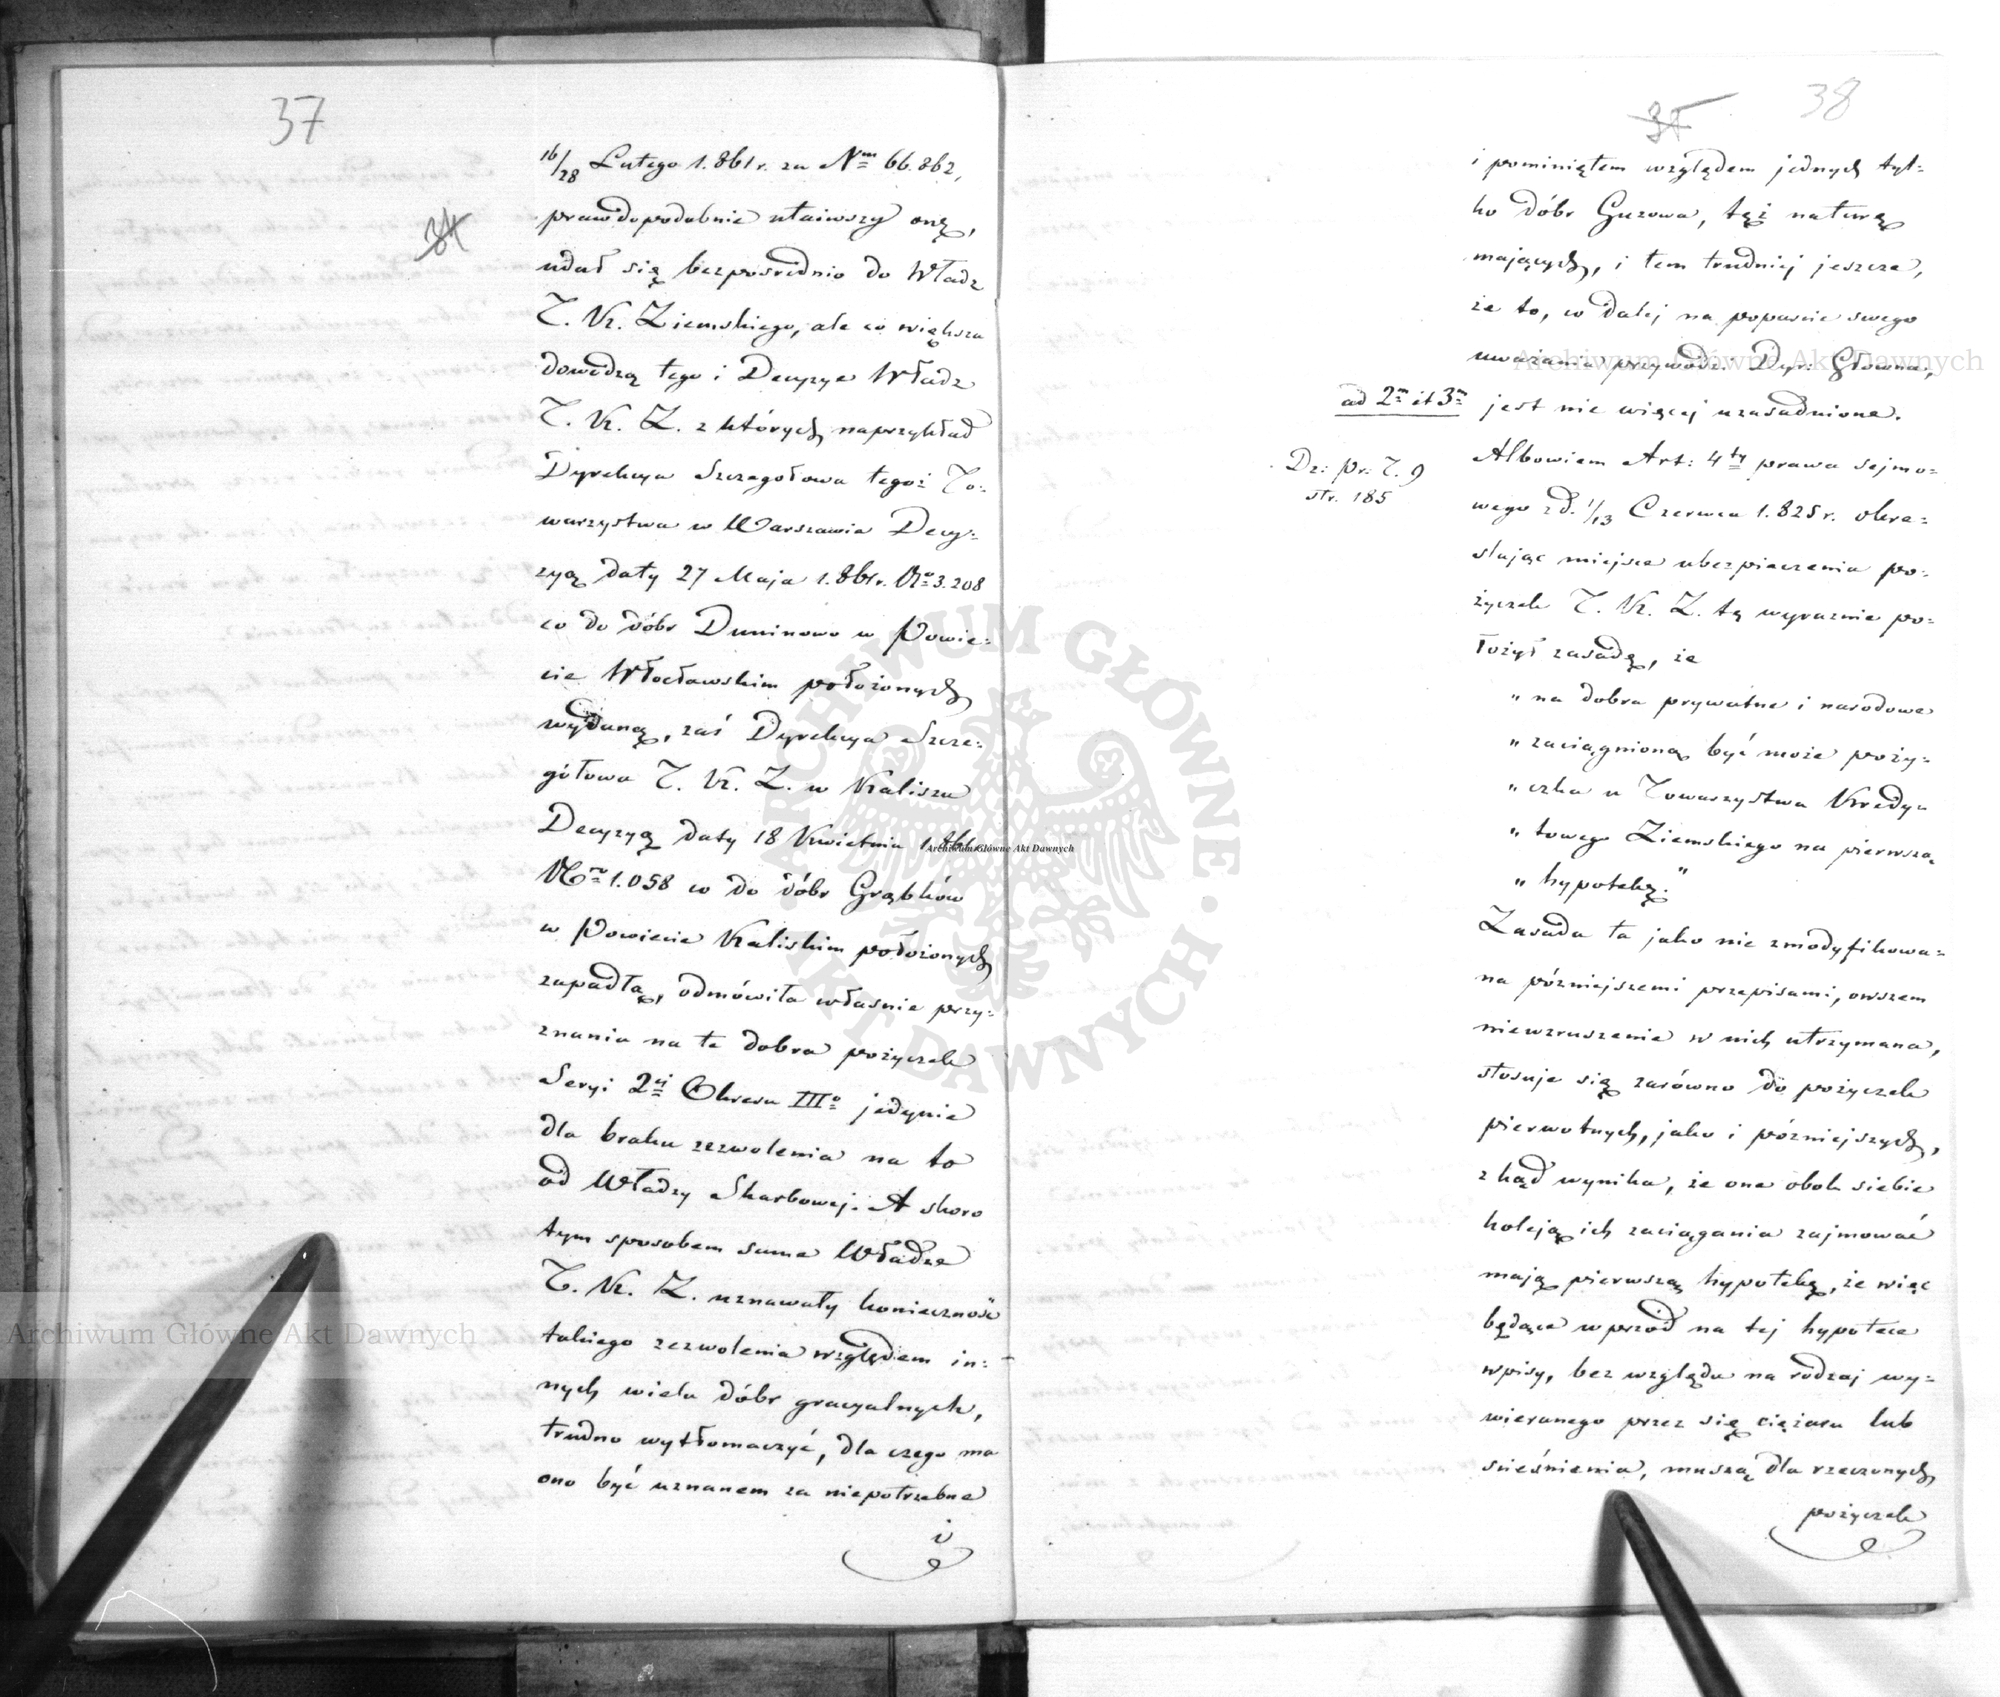 37
34
16/28 Lutego 1.861 r. za Nm 66.862,
prawdopodobnie utaiwszy onę,
udał się bezpośrednio do Władz
T. Kr. Ziemskiego, ale co większa
dowodzą tego i Decyzye Władz
T. Kr. Z. z których naprzykład
Dyrekcya Szczegołowa tegoż To-
warzystwa w Warszawie Decy-
zyą daty 27 Maja 1.861 r. No 3.208
co do dóbr Duninowo w Powie-
cie Włocławskim położonych
wydaną, zaś Dyrekcya Szcze-
gółowa T. Kr. Z. w Kaliszu
Decyzyą daty 18 Kwietnia 1.861 r.
Nro 1.058 co do dóbr Grąbków
w Powiecie Kaliskim położonych
zapadłą, odmówiła własnie przy-
znania na te dobra pożyczek
Seryi 2ej Okresu IIIo jedynie
dla braku zezwolenia na to
od Władzy Skarbowej. A skoro
tym sposobem same Władze
T. Kr. Z. uznawały konieczność
takiego zezwolenia względem in-
nych wielu dóbr gracyalnych,
trudno wytłomaczyć, dla czego ma
ono być uznanem za niepotrzebne
i
38
35
i pominiętem względem jednych tyl-
ko dóbr Guzowa, tęż naturę
mających, i tem trudniej jeszcze,
że to, co dalej na poparcie swego
uważania przywodzi Dyr: Główna,
ad 2m et 3m jest nie więcej uzasadnione.
Dz: pr: T. 9
str. 185
Albowiem Art: 4ty prawa sejmo-
wego z d. 1/13 Czerwca 1.825 r. okre-
slając miejsce ubezpieczenia po-
życzek T. Kr. Z. tę wyraznie po-
łożył zasadę, że
„ na dobra prywatne i narodowe
„ zaciągnioną być może poży-
„ czka u Towarzystwa Kredy-
„ towego Ziemskiego na pierwszą
„ hypotekę."
Zasada ta jako nie zmodyfikowa-
na póżniejszemi przepisami, owszem
niewzruszenie w nich utrzymana,
stosuje się zarówno do pożyczek
pierwotnych, jako i póżniejszych,
zkąd wynika, że one obok siebie
koleją ich zaciągania zajmować
mają pierwszą hypotekę, że więc
będące wprzód na tej hypotece
wpisy, bez względu na rodzaj wy-
wieranego przez się ciężaru lub
scieśnienia, muszą dla rzeczonych
pożyczek
Archiwum Główne Akt Dawnych
Archiwum Główne Akt Dawnych
Archiwum Główne Akt Dawnych
ARCHIWUM GŁÓWNE AKT DAWNYCH